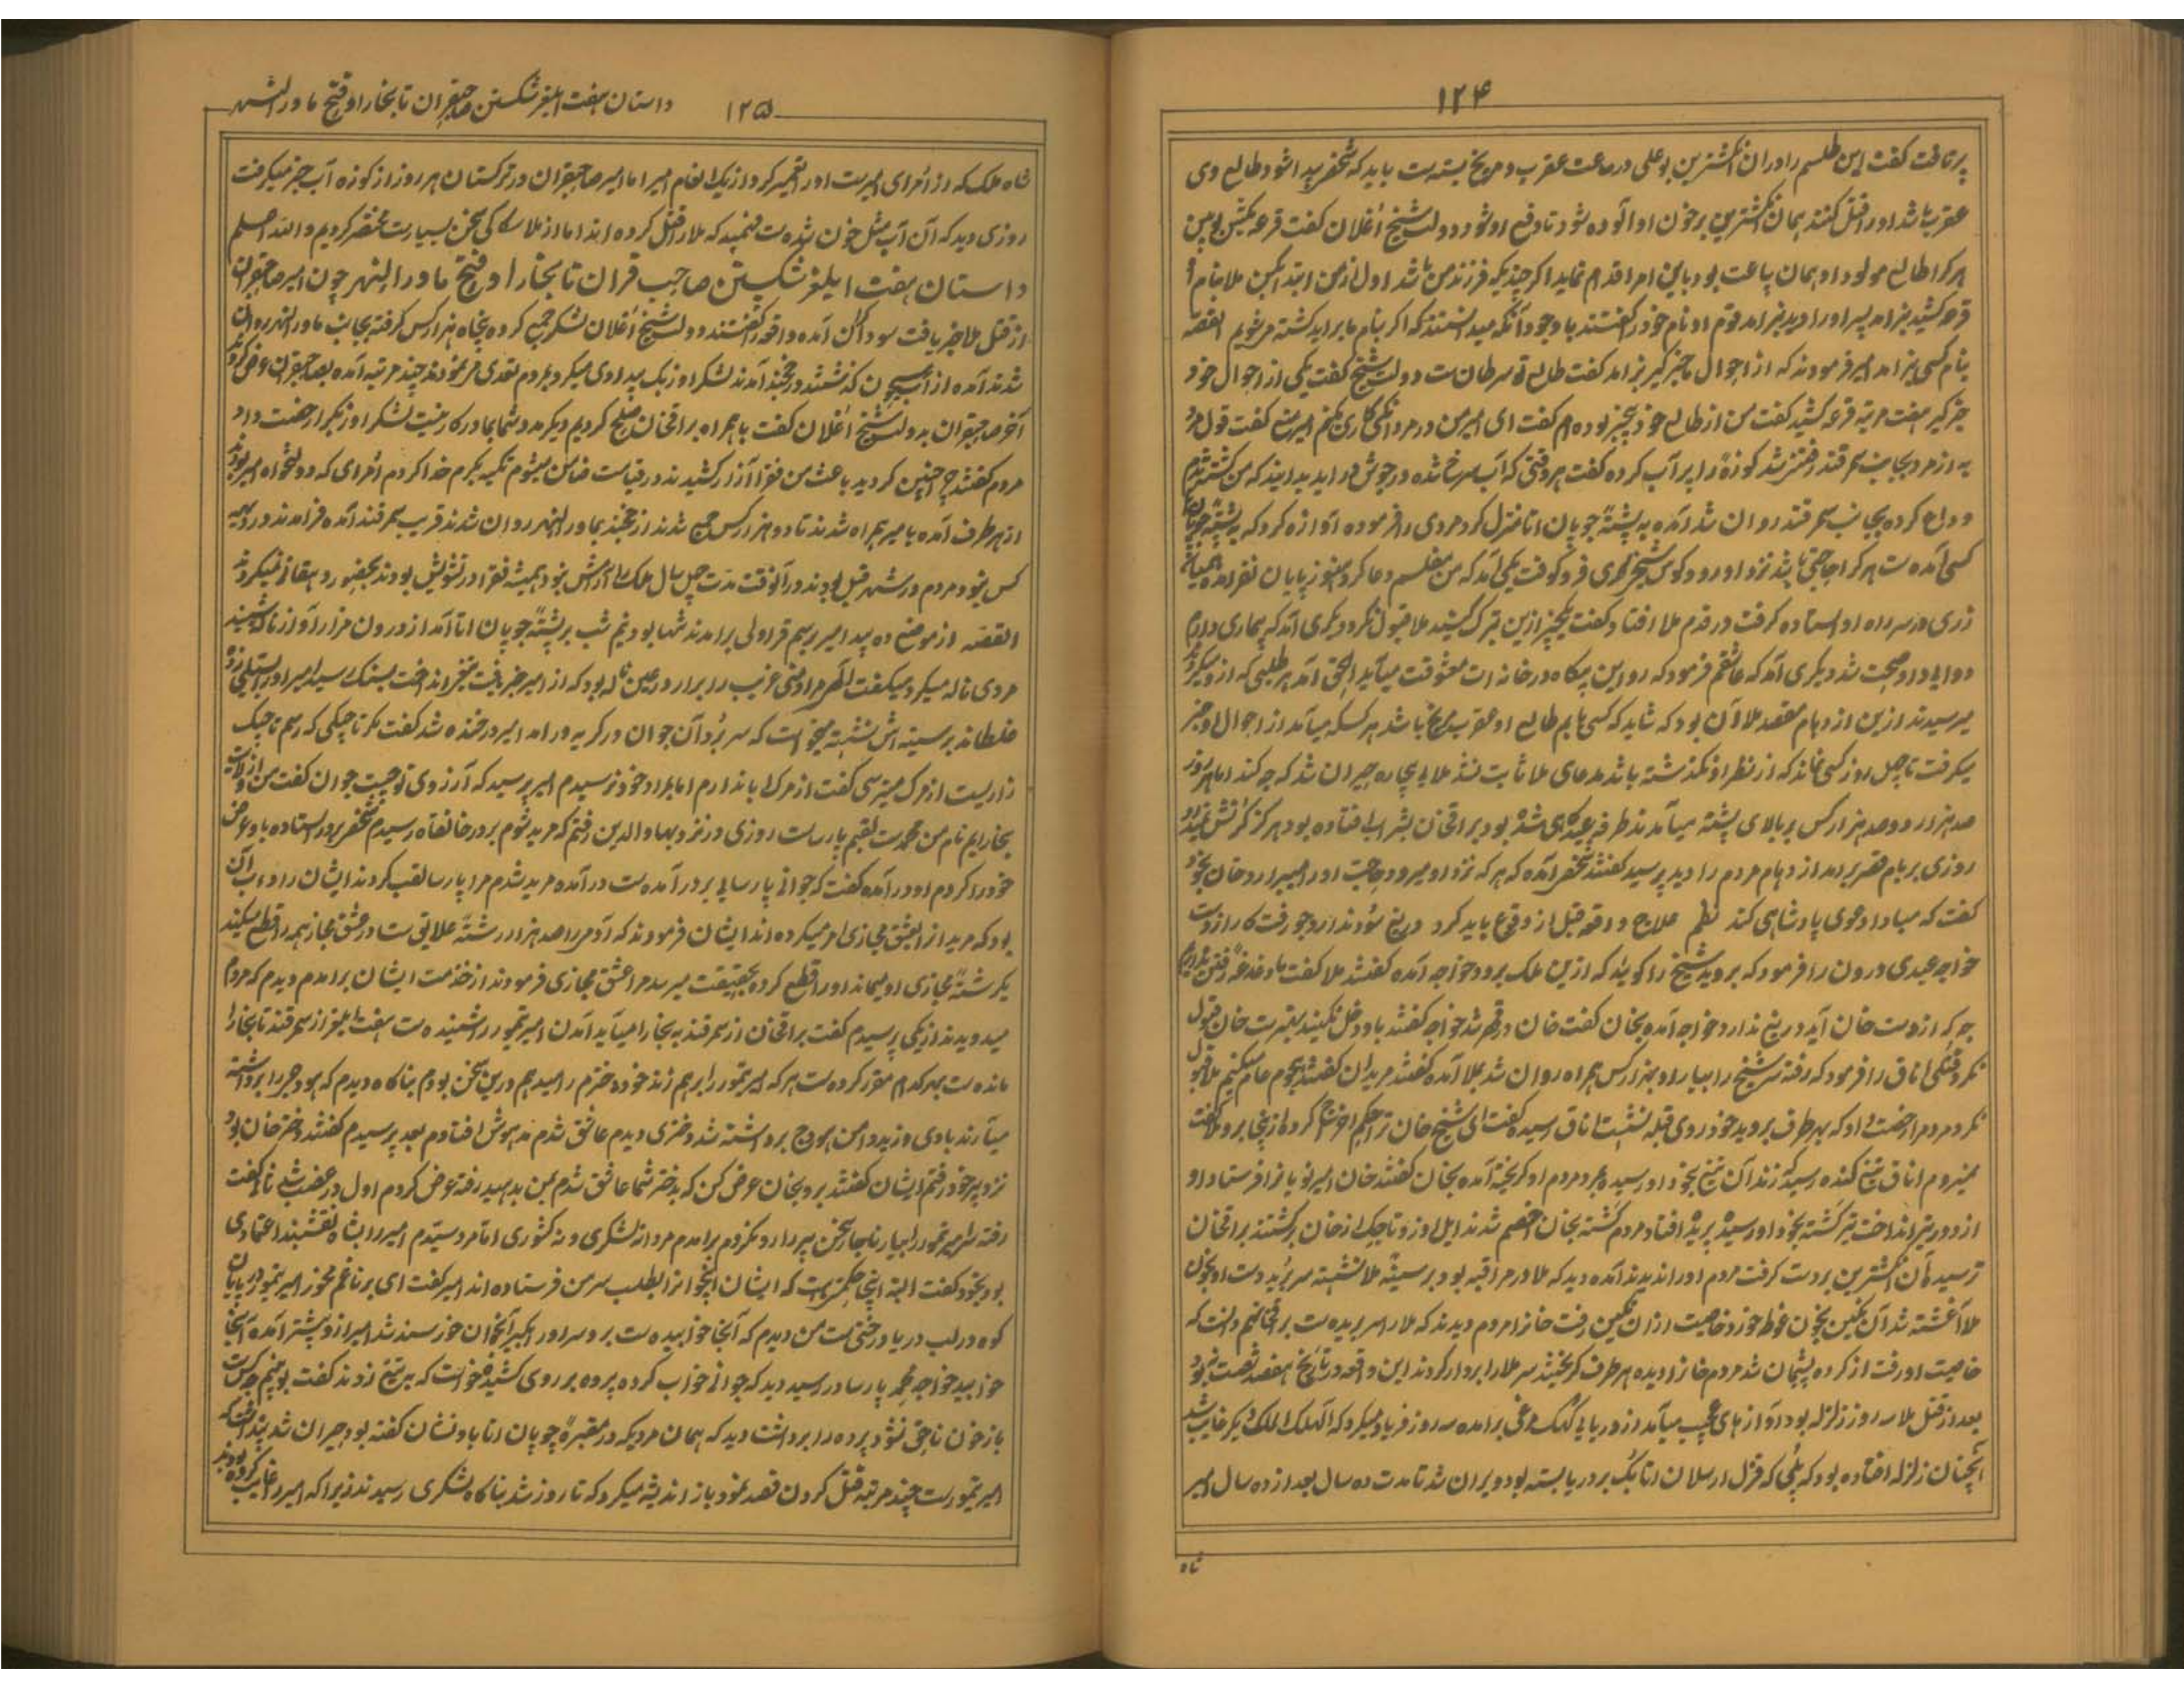 ۱۲۴
پرتافت گفت این طلسم را در ان انگشترین بوعلی در ساعت عقرب و مریخ بسته است باید که شخصی پیدا شود طالع وی
عقرب باشد او را قتل کنند همان انگشترین بر خون او آلوده شود تا دفع او شود دولت شیخ اغلان گفت قرعه
هر کرا طالع مولود او همان ساعت بود باین امر اقدام نماید اگر چندیکه فرزند من باشد اول از من ابتدا کن ملا بنام
قرعه کشید نیامد پسر او را دید نیامد قوم او نام خود را گفتند باوجود آنکه میدانستند که اگر بنام ما براید کشته میشویم القصه
بنام کسی نیامد امیر فرمودند که از احوال ما خبر گیر برامد گفت طالع تو سرطان است دولت شیخ گفت یکی از احوال خود
خبر گیر هفت مرتبه قرعه کشید گفت من از طالع خود بیخبر بوده ام گفت ای امیر من در مردانگی کاری کنم امیر گفت قول مرد
به از مرد بجانب سمرقند رفتنی شد کوزه را پر آب کرده گفت هر وقتی که آب سرخ شده در جوش در اید بدانید که من کشته شدم
وداع کرده بجانب سمرقند روان شد آمده به پشته چوپان اتا منزل کرد مردی را فرموده آوازه کرد که به پشته چوپان
کسی آمده است هر کرا حاجتی باشد نزد او رود کوس شیخی فرو کوفت یکی آمد که من مفلسم دعا کرد هنوز پایان نفرامده همیانه
زری در سر راه او ایستاده گرفت در قدم ملا افتاد و گفت چیزی ازین تبرک گیرید ملا قبول نکرد دیگری آمد که بیماری دارم
دوایی داد صحت شد دیگری آمد که عاشقم فرمود که رو این پگاه در خانه ات معشوقت میآید الحق آمد هر طلبی که از او میکردند
میرسیدند ازین ازدهام مقصد ملا آن بود که شاید کسی یابم طالع او عقرب مریخ باشد هر کسکه میآمد از احوال او خبر
میگرفت تا چهل روز کسی نماند که از نظر او نگذشته باشد مدعای ملا ثابت نشد ملای بیچاره حیران شد که چه کند اما هر روز
صد هزار دو صد هزار کس بر بالای پشته میآمدند طرفه عیدگاهی شده بود براقخان بشراب افتاده بود هرگز
روزی بر بام قصر برامد ازدهام مردم را دید پرسید گفتند شخصی آمده که هر که نزد او میرود حاجت او را میبرارد خان بخود
گفت که مبادا دعوی پادشاهی کند نظم علاج واقعه قبل از وقوع باید کرد دریغ سود ندارد چو رفت کار از دست
خواجه عبدی درون را فرمود که بروید شیخ را گوئید که ازین ملک برود خواجه آمده گفتند ملا گفت ما دغدغه رفتن نداریم
هر چه که از دست خان آید دریغ ندارد خواجه آمده بخان گفت خان در قهر شد خواجه گفتند باو دخل نکنید بهتر است خان قبول
نکرد قتلکی اتاق را فرمود که رفته سر شیخ را بیارد او به هزار کس همراه روان شد بملا آمده گفتند مریدان گفتند هجوم عام میکنیم ملا قبول
نکرد مردم را رخصت داد که بهر طرف بروید خود روی قبله نشست اتاق رسیده گفت ای شیخ خان ترا حکم اخراج کرده از ینجا برو ملا گفت
نمیروم اتاق تیغ کنده رسید که زند آن تیغ بخود او رسیده مرد مردم او گریخته آمده بخان گفتند خان امیر نویان را فرستاد او
از دور تیر انداخت تیر گشته بخود او رسید بریده افتاد مردم گشته بخان خصم شدند ایل اوزو تاجیک از خان برگشتند براقخان
ترسید آن انگشترین بردست گرفت مردم او را ندیدند آمده دید که ملا در مراقبه بود بر سینه ملا نشسته سر برید دست او بخون
ملا آغشته شد آن نگین بخون غوطه خورد خاصیت از ان نگین رفت خان را مردم دیدند که ملا را سر بریده است براقخان هم دانست که
خاصیت او رفت از کرده پشیمان شد مردم خان را دیده هر طرف گریختند سر ملا را بردار کردند این واقعه در تاریخ هفصد شصت بود
بعد از قتل ملا سه روز زلزله بود آوازهای عجیب میآمد از دریای کوهک مرغی برامده سه روز فریاد میکرد که الهلاک الهلاک دیگر غایب شد
آنچنان زلزله افتاده بود که پلی که قزل ارسلان اتابک بر دریا بسته بود ویران شد تا مدت ده سال بعد از ده سال امیر
شاه
۱۲۵ داستان هفت ایلغر شکستن صاحبقران تا بخارا و فتح ماورالنهر
شاه ملک که از امرای امیرست او را تعمیر کرد از یک انعام امیر اما امیر صاحبقران در ترکستان هر روز از کوزه آب خبر میگرفت
روزی دید که آن آب مثل خون شده است فهمید که ملا را قتل کرده اند اما از ملا سکاکی سخن بسیارست مختصر کردیم والله اعلم
داستان هفت ایلغر شکستن صاحب قران تا بخارا و فتح ماورالنهر چون امیر صاحبقران
از قتل ملا خبر یافت سوداگران آمده واقعه را گفتند دولت شیخ اغلان لشکر جمع کرده پنجاه هزار کس گرفته بجانب ماورالنهر روان
شدند آمده از آب سیحون گذشتند در خجند آمدند لشکر اوزبک بیدادی میکرد بمردم تعدی مینمودند چند مرتبه آمده بصاحبقران عرض کردند
آخر صاحبقران بدولت شیخ اغلان گفت باهمراه براقخان صلح کردیم دیگر مدد شما بما درکار نیست لشکر اوزبک را رخصت داد
مردم گفتند چرا چنین کردید باعث من فقرا آزار کشیدند در قیامت ضامن میشوم تکیه بکرم خدا کردم امرای که دولتخواه امیر بودند
از هر طرف آمده با میر همراه شدند تا دو هزار کس جمع شدند از خجند بماورالنهر روان شدند قریب سمرقند آمده فرامدند در دهیه
کس نبود مردم در شهر قبل بودند در آنوقت مدت چهل سال ملک را آرامش نبود همیشه فقرا در تشویش بودند بحضور دهقانی نمیکردند
القصه از موضع ده بید امیر برسم قراولی برامدند تنها بود نیم شب بر پشته چوپان اتا آمد از درون مزار آواز ناله شنید
مردی ناله میکرد میگفت الهی مراد منی غریب را برار در عین ناله بود که از امیر خبر یافت تیغ انداخت بسنگ رسید امیر او را سیلی زد
غلطاند بر سینه اش نشسته میخواست که سر برد آن جوان در گریه درامد امیر در خنده شد گفت مگر تاجیکی که رسم تاجیک
زاریست از مرگ میترسی گفت از مرگ ابا ندارم اما بمراد خود نرسیدم امیر پرسید که آرزوی تو چیست جوان گفت من از ولایت
بخارایم نام من محمدست لقبم پارسات روزی در نزد بهاوالدین رفتم که مرید شوم بر در خانقاه رسیدم شخصی بر در ایستاده باو عرض
خود را کردم او درآمده گفت که جوانی پارسایی بر در آمده است درآمده مرید شدم مرا پارسا لقب کردند ایشان را داب آن
بود که مرید از العشق مجازی امر میکرده اند ایشان فرمودند که آدمی را صد هزار رشته علایق است در عشق مجاز همه را قطع میکند
یک رشته مجازی او میماند او را قطع کرده بحقیقت میرسد مرا عشق مجازی فرمودند از خدمت ایشان برامدم دیدم که مردم
میدویدند از یکی پرسیدم گفت براقخان از سمرقند به بخارا میآید آمدن امیر تیمور را شنیده است هفت ایلغر از سمرقند تا بخارا
مانده است بهر کدام مقرر کرده است هر که امیر تیمور را برهم زند خود دخترم را میدهم درین سخن بودم بناگاه دیدم که هودج را برداشته
میآرند بادی وزید دامن هودج برداشته شد دختری دیدم عاشق شدم مدهوش افتادم بعد پرسیدم گفتند دختر خان بود
نزد پیر خود رفتم ایشان گفتند برو بخان عرض کن که بدختر شما عاشق شدم بمن بدهید رفته عرض کردم اول در غضب شد ثانی گفت
رفته سر امیر تیمور را بیار ناچار سخن پیر را رد نکردم برامدم مرا نه لشکری و نه کشوری اما مرد سیدم امیر را بشاه نقشبند اعتمادی
بود بخود گفت البته اینجا حکمتی است که ایشان اینجوان را بطلب سر من فرستاده اند امیر گفت ای برنا غم مخور امیر تیمور در پایان
کوه در لب دریا درختی است من دیدم که آنجا خوابیده است برو سر او را بگیر آنجوان خورسند شد امیر از او پیشتر آمده آنجا
خوابید خواجه محمد پارسا در رسید دید که جوانی خواب کرده پرده بر روی کشیده خواست که تیغ زند گفت بوینم چه کس است
باز خون ناحق نشود پرده را برداشت دید که همان مردیکه در مقبره چوپان اتا باو نشان گفته بود حیران شد بدانست که
امیر تیمورست چند مرتبه قتل کردن قصد نمود باز اندیشه میکرد که تا روز شد بناگاه لشکری رسیدند زیرا که امیر را غایب کرده بودند